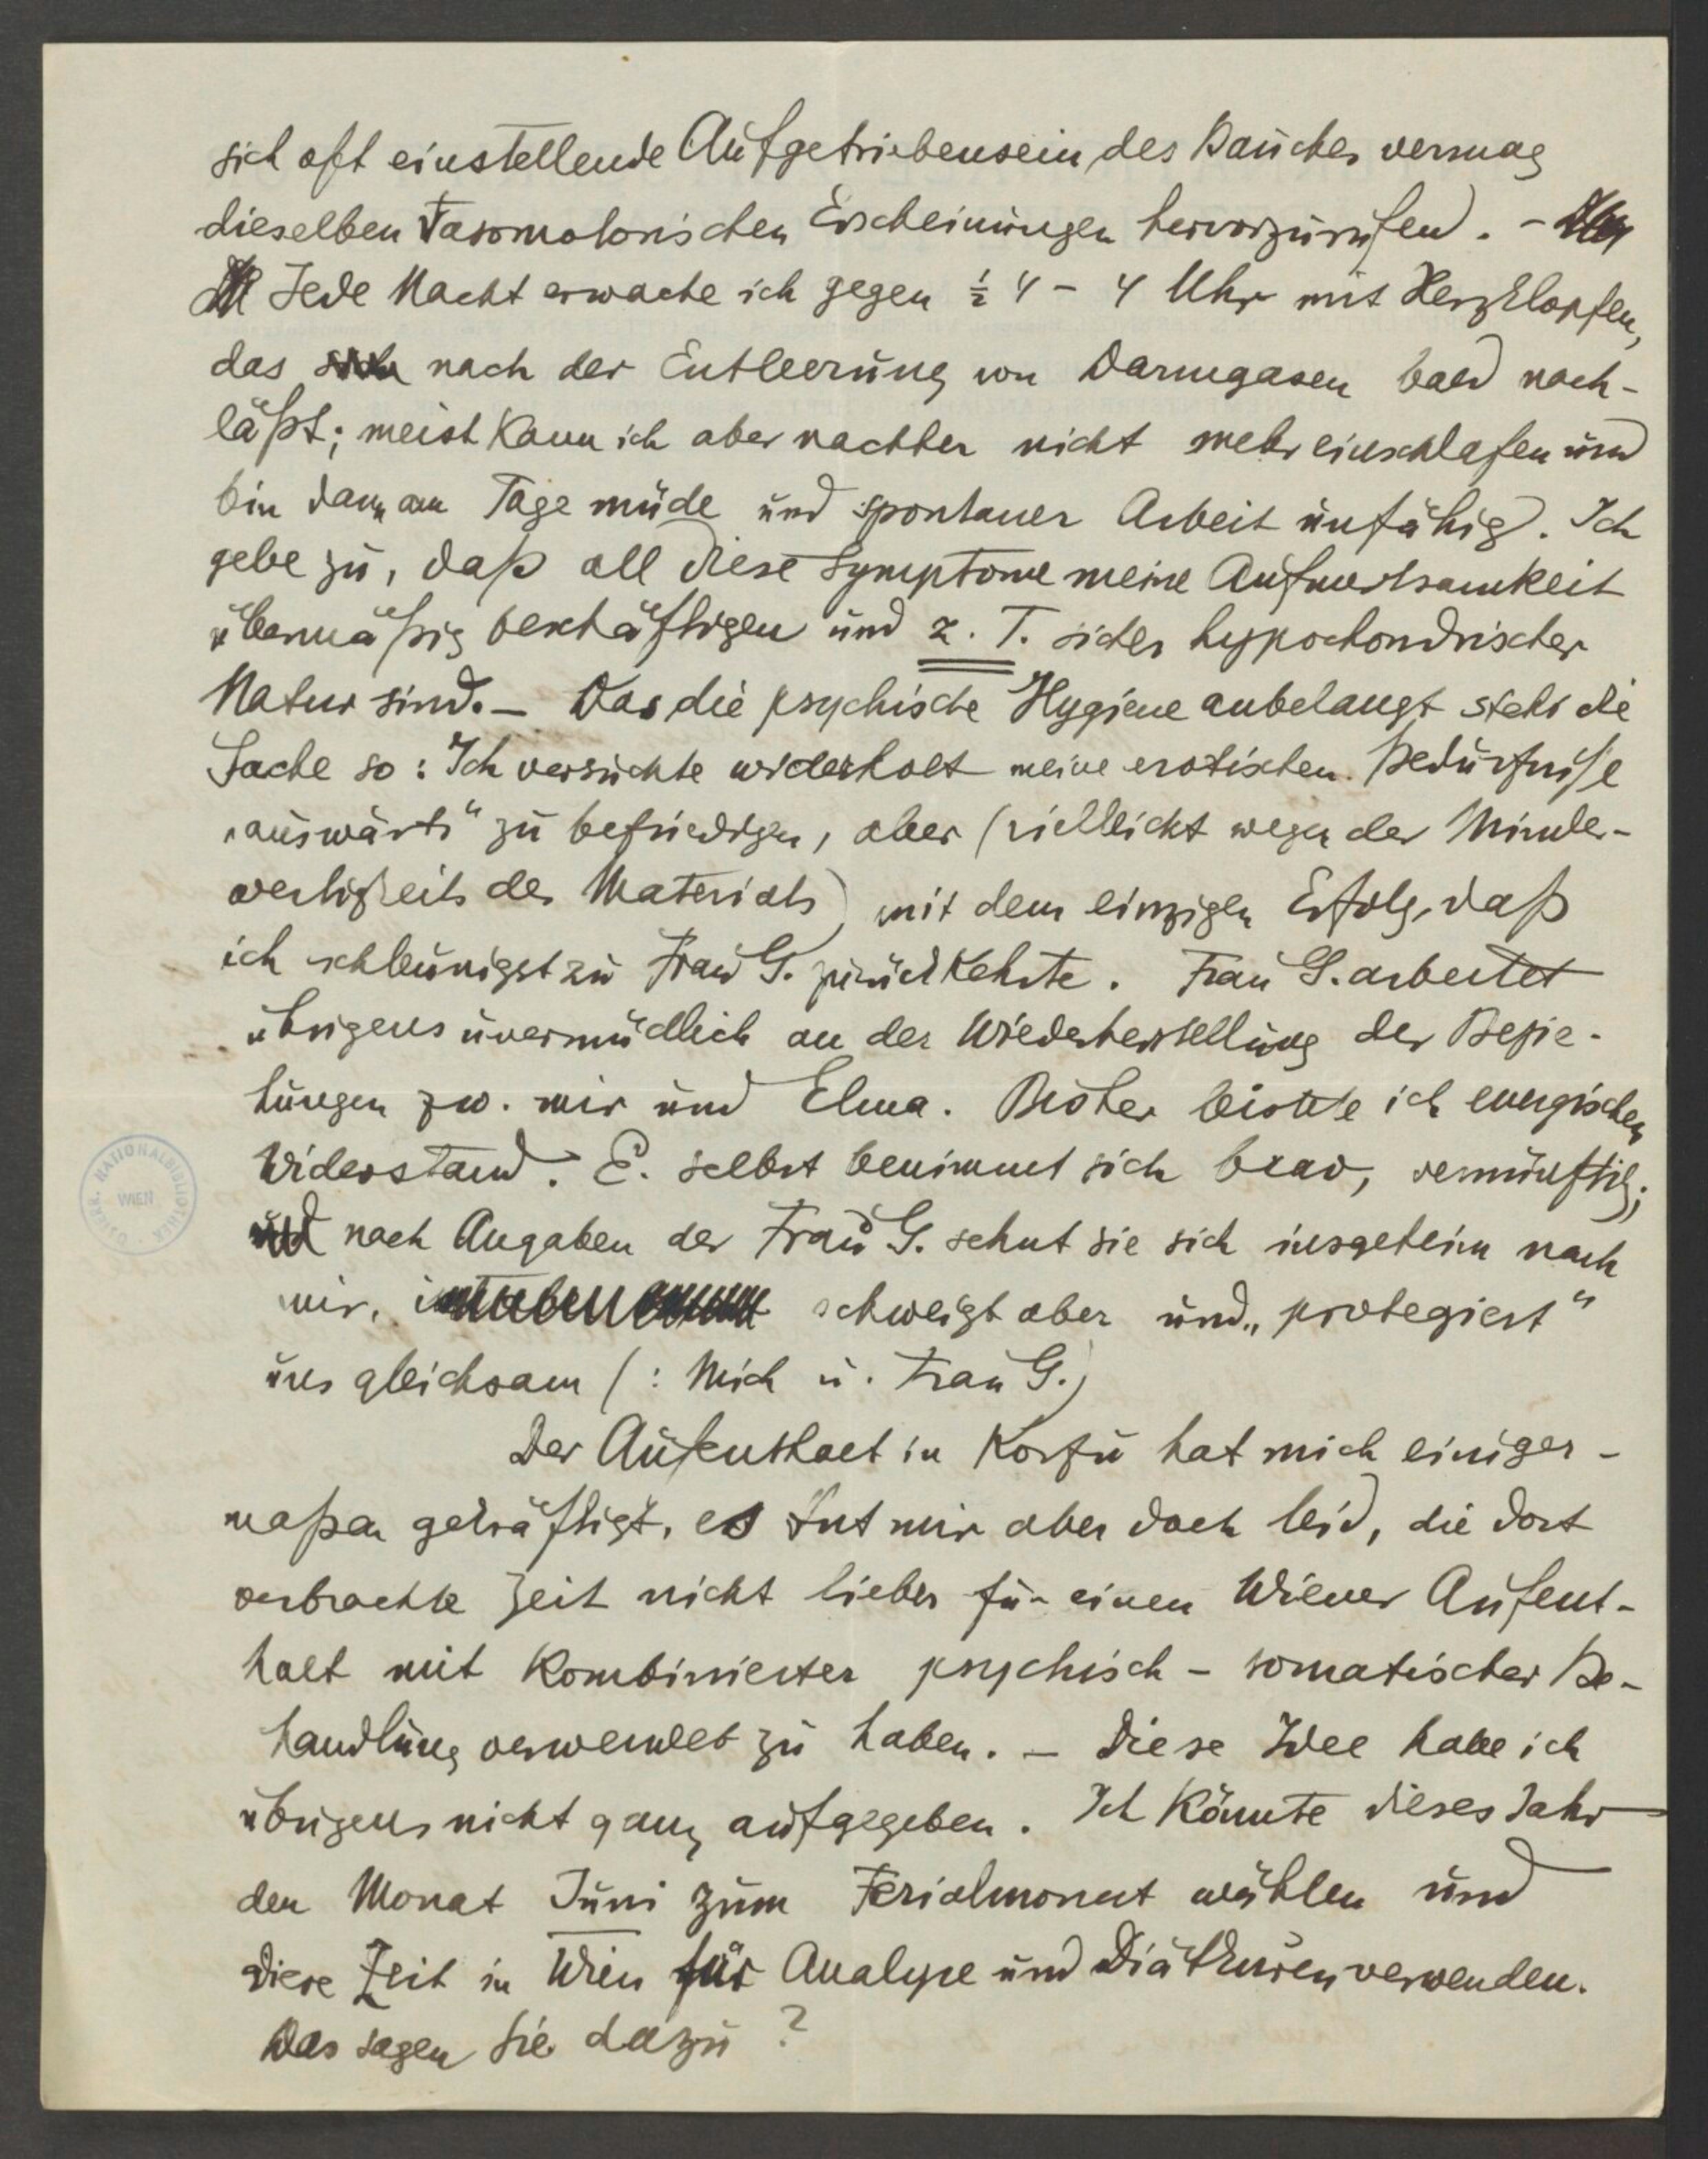 sich oft einstellende Aufgetriebensein des Bauches vermag
dieselben vasomotorischen Erscheinungen hervorzurufen. –
Jede Nacht erwache ich gegen ½ 4 – 4 Uhr mit Herzklopfen,
das nach der Entleerung von Darmgasen bald nach-
läßt; meist kann ich aber nachher nicht mehr einschlafen und
bin dann am Tage müde und spontaner Arbeit unfähig. Ich
gebe zu, daß all diese Symptome meine Aufmerksamkeit
übermäßig beschäftigen und z. T. sicher hypochondrischer
Natur sind. – Was die psychische Hygiene anbelangt steht die
Sache so: Ich versuchte widerholt meine erotischen Bedürfnisse
„auswärts“ zu befriedigen, aber (vielleicht wegen der Minder-
wertigkeit des Materials) mit dem einzigen Erfolg, daß
ich schleunigst zu Frau G. zurückkehrte. Frau G. arbeitet
übrigens unermüdlich an der Wiederherstellung der Bezie-
hungen zw. mir und Elma. Bisher leistete ich energischen
Widerstand. E. selbst benimmt sich brav, vernünftig;
nach Angaben der Frau G. sehnt sie sich insgeheim nach
mir, schweigt aber und „protegiert“
uns gleichsam (: Mich u. Frau G.)
Der Aufenthalt in Korfu hat mich einiger-
maßen gekräftigt, es tut mir aber doch leid, die dort
verbrachte Zeit nicht lieber für einen Wiener Aufent-
halt mit kombinierter psychisch – somatischer Be-
handlung verwendet zu haben. – Diese Idee habe ich
übrigens nicht ganz aufgegeben. Ich könnte dieses Jahr
den Monat Juni zum Ferialmonat wählen und
diese Zeit in Wien für Analyse und Diätkuren verwenden.
Was sagen Sie dazu?
ÖSTERR. NATIONALBIBLIOTHEK
WIEN